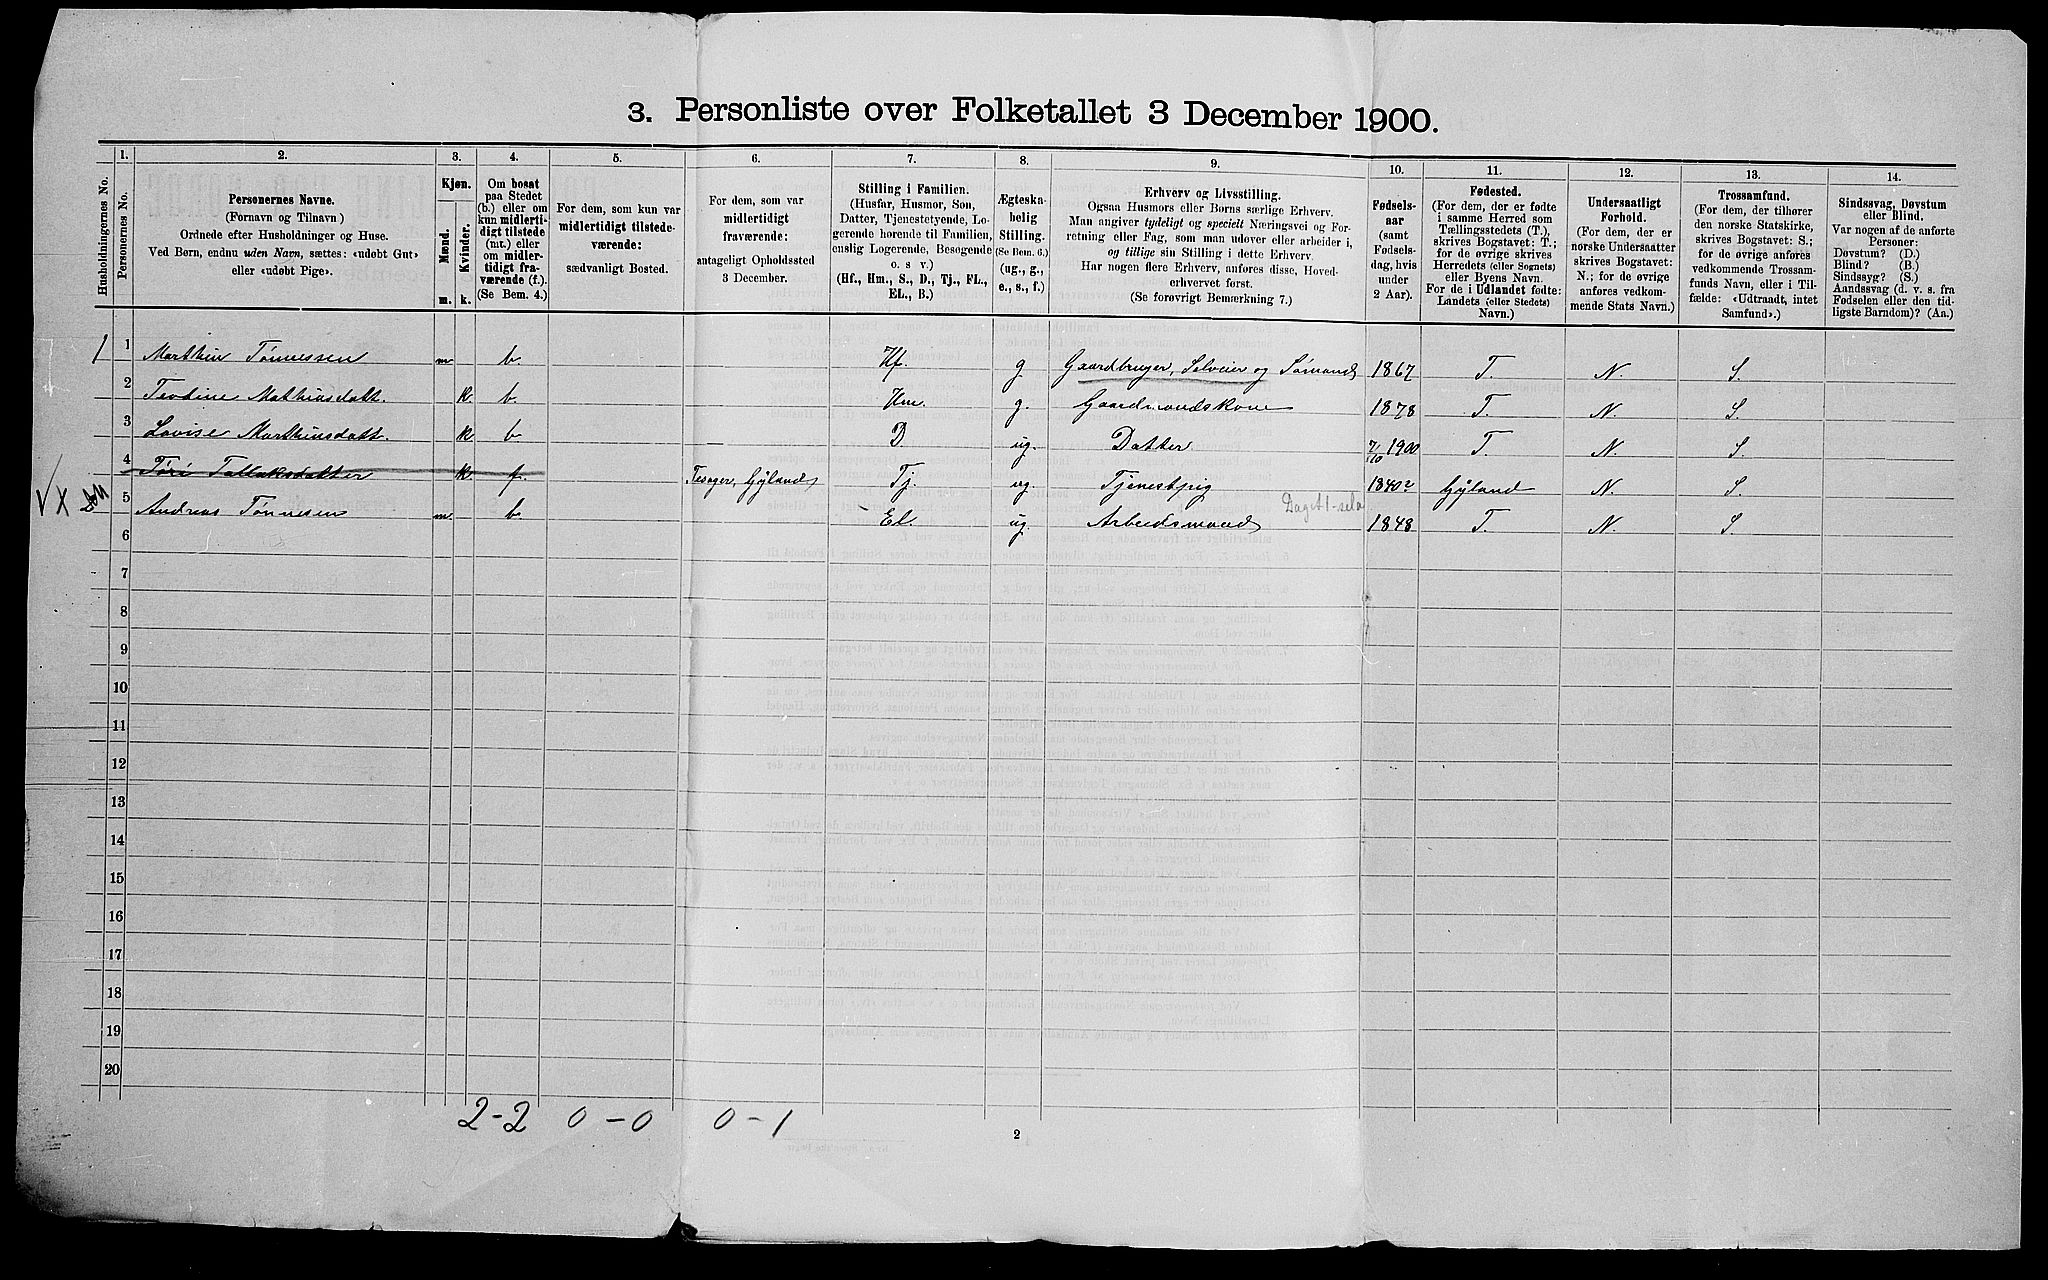 3. Personliste over Folketallet 3 December 1900.
1. 2. 3. 4. 5. 6. 7. 8. 9. 10. 11. 12. 13. 14.
Husholdningernes No.
Personernes No.
Personernes Navne.
(Fornavn og Tilnavn)
Ordnede efter Husholdninger og Huse.
Ved Børn, endnu uden Navn, sættes: «udøbt Gut»
eller «udøbt Pige».
Kjøn.
Mænd.
Kvinder.
m. k.
Om bosat
paa Stedet
(b.) eller om
kun midlerti-
digt tilstede
(mt.) eller
om midler-
tidigt fra-
værende (f.)
(Se Bem. 4.)
For dem, som kun var
midlertidigt tilstede-
værende:
sædvanligt Bosted.
For dem, som var
midlertidigt
fraværende:
antageligt Opholdssted
3 December.
Stilling i Familien.
(Husfar, Husmor, Søn,
Datter, Tjenestetyende, Lo-
gerende hørende til Familien,
enslig Logerende, Besøgende
o. s v.)
(Hf., Hm., S., D., Tj., FL.,
EL., B.)
Ægteska-
belig
Stilling.
(Se Bem. 6.)
(ug., g.,
e., s., f.)
Erhverv og Livsstilling.
Ogsaa Husmors eller Børns særlige Erhverv.
Man angiver tydeligt og specielt Næringsvei og For-
retning eller Fag, som man udøver eller arbeider i,
og tillige sin Stilling i dette Erhverv.
Har nogen flere Erhverv, anføres disse, Hoved-
erhvervet først.
(Se forøvrigt Bemærkning 7.)
Fødsels-
aar
(samt
Fødsels-
dag, hvis
under
2 Aar).
Fødested.
(For dem, der er fødte
i samme Herred som
Tællingsstedets (T.),
skrives Bogstavet: T.;
for de øvrige skrives
Herredets (eller Sognets)
eller Byens Navn.
For de i Udlandet fødte:
Landets (eller Stedets)
Navn.)
Undersaatligt
Forhold.
(For dem, der er
norske Undersaatter
Bogstavet:
N.; for de øvrige
anføres vedkom-
mende Stats Navn.)
Trossamfund.
(For dem, der tilhører
den norske Statskirke,
skrives Bogstavet: S.;
for de øvrige anføres
vedkommende Trossam-
funds Navn, eller i Til-
fælde: «Udtraadt, intet
Samfund».)
Sindssvag, Døvstum
eller Blind.
Var nogen af de anførte
Personer:
Døvstum? (D.)
Blind? (B.)
Sindssyg? (S.)
Aandssvag (d. v. s. fra
Fødselen eller den tid-
ligste Barndom)? (Aa.)
1 1 Marthin Tønnessen m. b. Hf. g. Gaardbruger, Selveier og Sømand 1867 T. N. S.
2 Teodine Mathiasdatt. k. b. Hm. g. Gaardmandskone 1878 T. N. S.
3 Lovise Marthinsdatt. k b. D. ug. Datter 7/10 1900 T. N. S.
4 Tøri Tallaksdatter k. f. Gyland Tj. ug. Tjenestpig 1840? Gyland N. S.
X 5 Andreas Tønnesen m. b. El. ug. Arbeidsmand 1848 T. N. S.
6
7
8
9
10
11
12
13
14
15
16
17
18
19
20
2-2 0-0 0-1
2